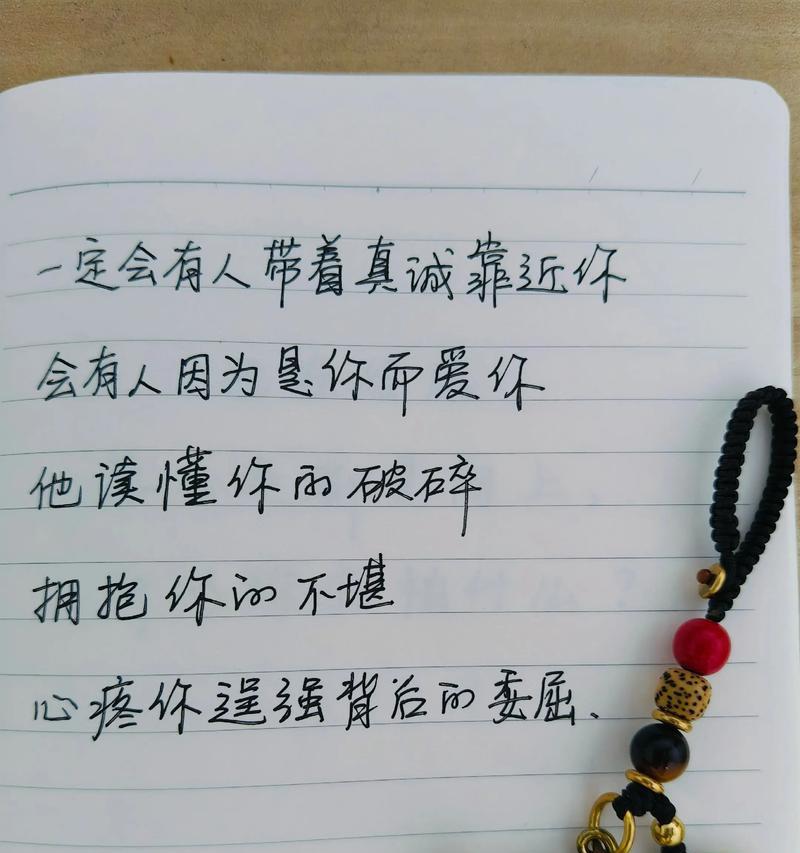 一定会有人带着真诚靠近你
会有人因为是你而爱你
他读懂你的破碎
拥抱你的不堪
心疼你逞强背后的委屈、